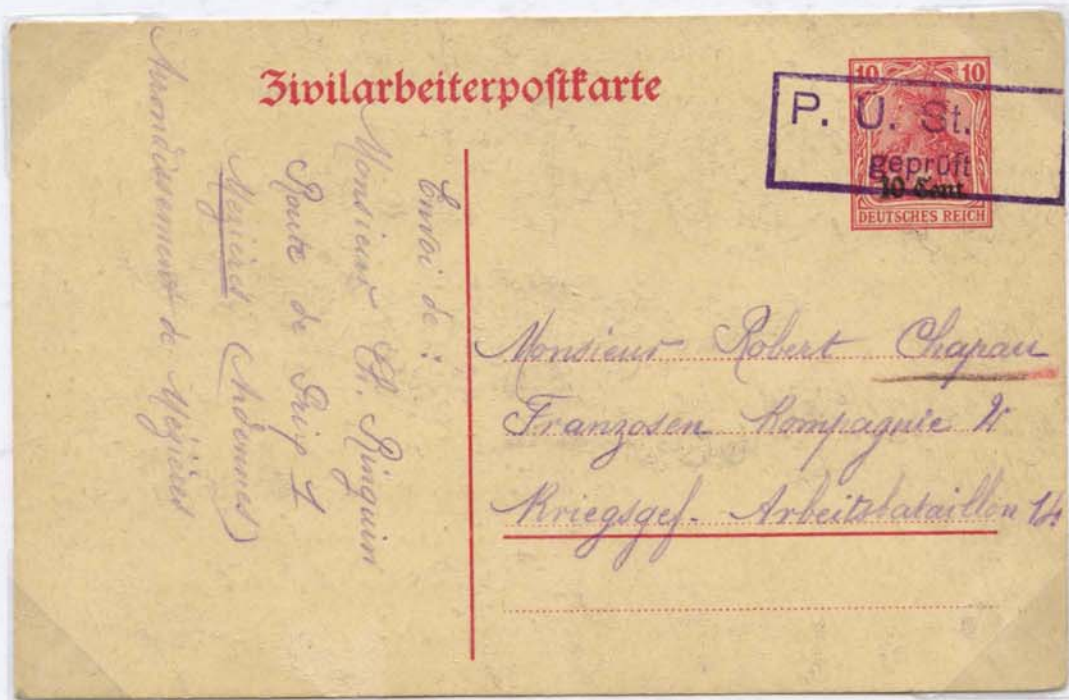 Zivilarbeiterpostkarte
10 10
P. Ü. St.
geprüft
10 Cent.
DEUTSCHES REICH
Envoi de :
Monsieur Ch. Ringuin
Route de Prix
Mézières (Ardennes)
Arrondissement de Mézières
Monsieur Robert Chapau
Franzosen Kompagnie
Kriegsgef. Arbeitsbataillon